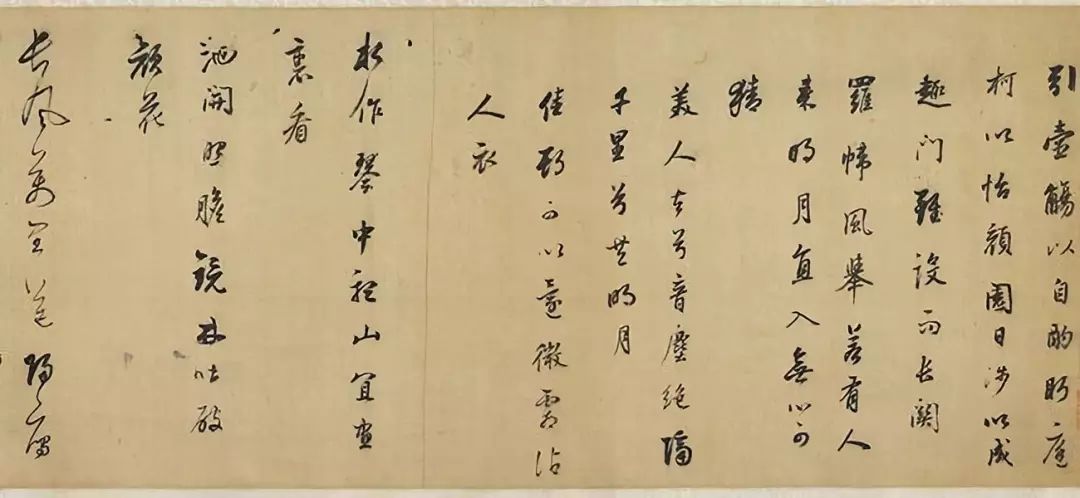 引壺觴以自酌眄庭
柯以怡顏園日涉以成
趣門雖設而長關
羅幃風舉若有人
來明月直入無心可
猜
美人去兮音塵絕隔
千里兮共明月
佳期可以還微霜沾
人衣
水作琴中聽山宜畫
裏看
池開照膽鏡林吐破
顏花
長風萬里